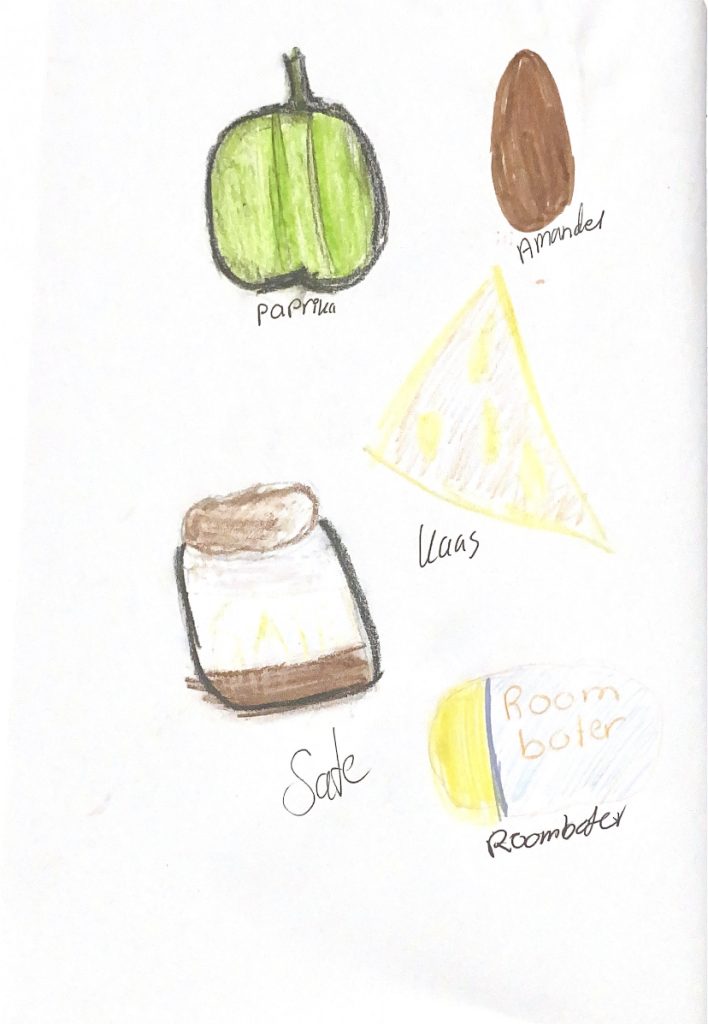 Amandel
paprika
Kaas
Sate
Room
boter
Roomboter